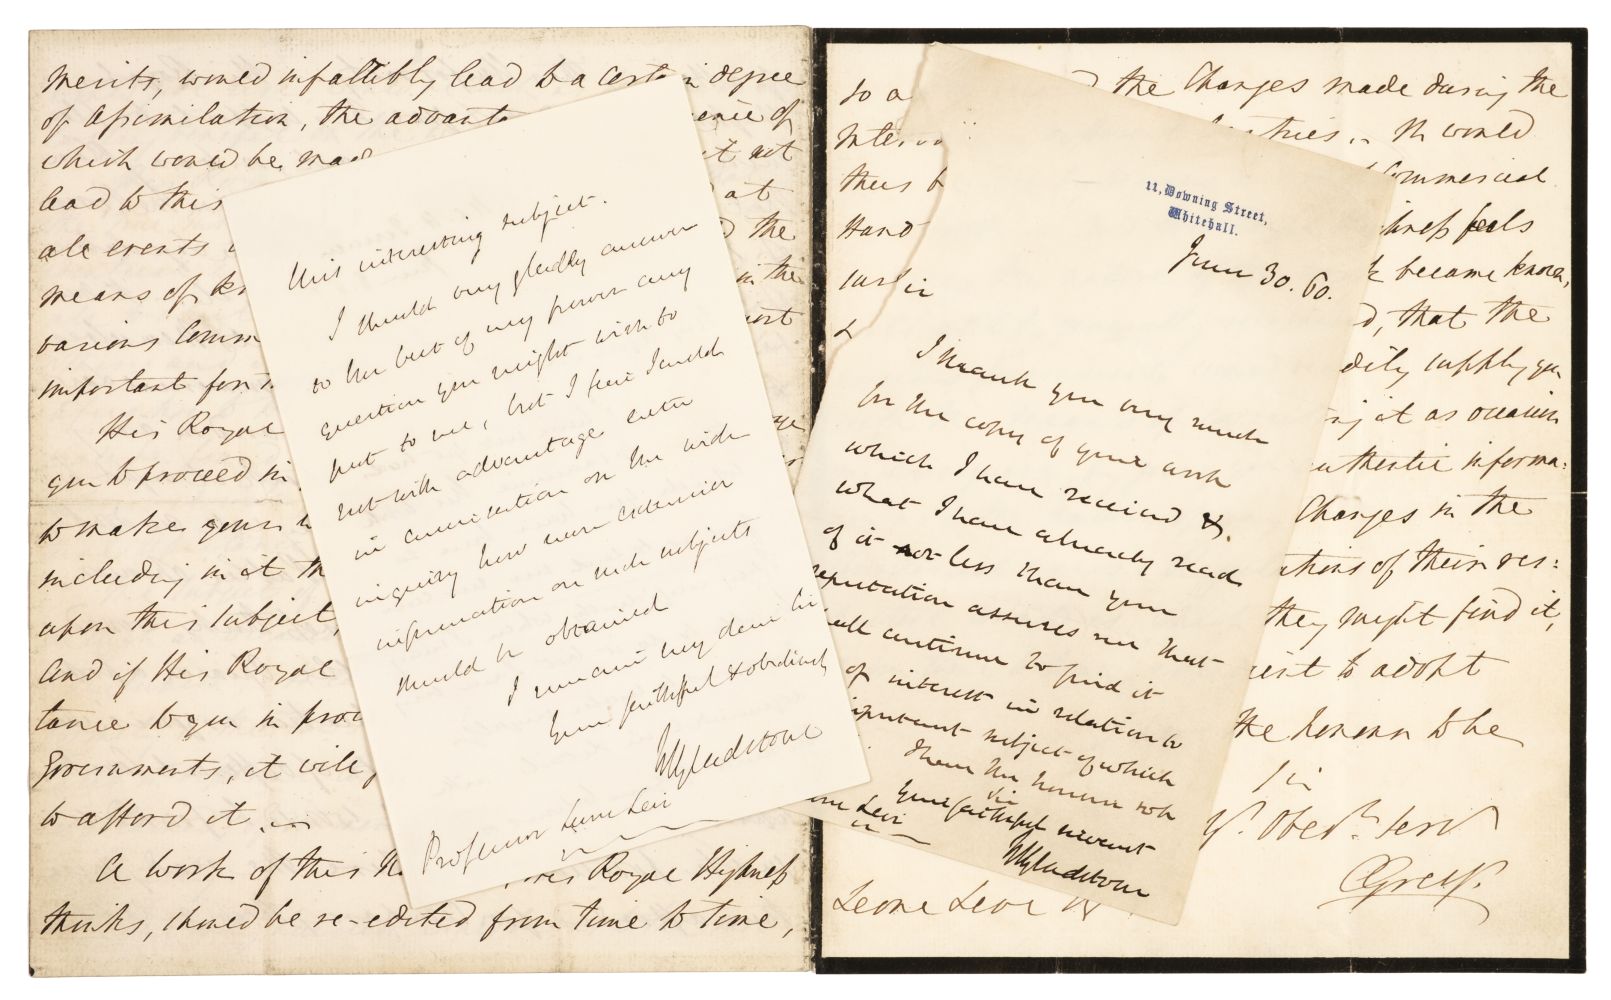 merits, would infallibly lead to a certain degree
of Assimilation, the advant
ence of
which would be, mad
it not
lead to this
at
all events
the
means of kn
in the
various Comm
most
important for
His Royal
you to proceed in
to make your
including in it th
upon this subject,
and if His Royal
tance to you in pro
Governments, it will
to afford it.
A work of this N
His Royal Highness
thinks, should be re-edited from time to time,
this interesting subject.
I should very gladly answer
to the best of my power any
question you might wish to
put to me, but I fear I could
not with advantage enter
in conversation on the wide
inquiry how more extensive
information on such subjects
should be obtained
I remain my dear Sir
Your faithful & obedient
WEGladstone
Professor Leone Levi
so a
the Changes made during the
Interv
ntries. It would
thus b
Commercial
Hand
hness feels
earlie
became known,
that the
dily supply you
it as occasion
authentic informa:
Changes in the
ations of their res:
they might find it,
to adopt
the honour to be
Sir
Yr. Obedt. Servt
CGrey.
Leone Levi
11, Downing Street,
Whitehall.
June 30. 60.
I thank you very much
for the copy of your work
which I have received &.
what I have already read
of it not less than your
reputation assures me that
shall continue to find it
of interest in relation to
important subject of which
I have the honour
Sir
Your faithful servant
WEGladstone
Leone Levi